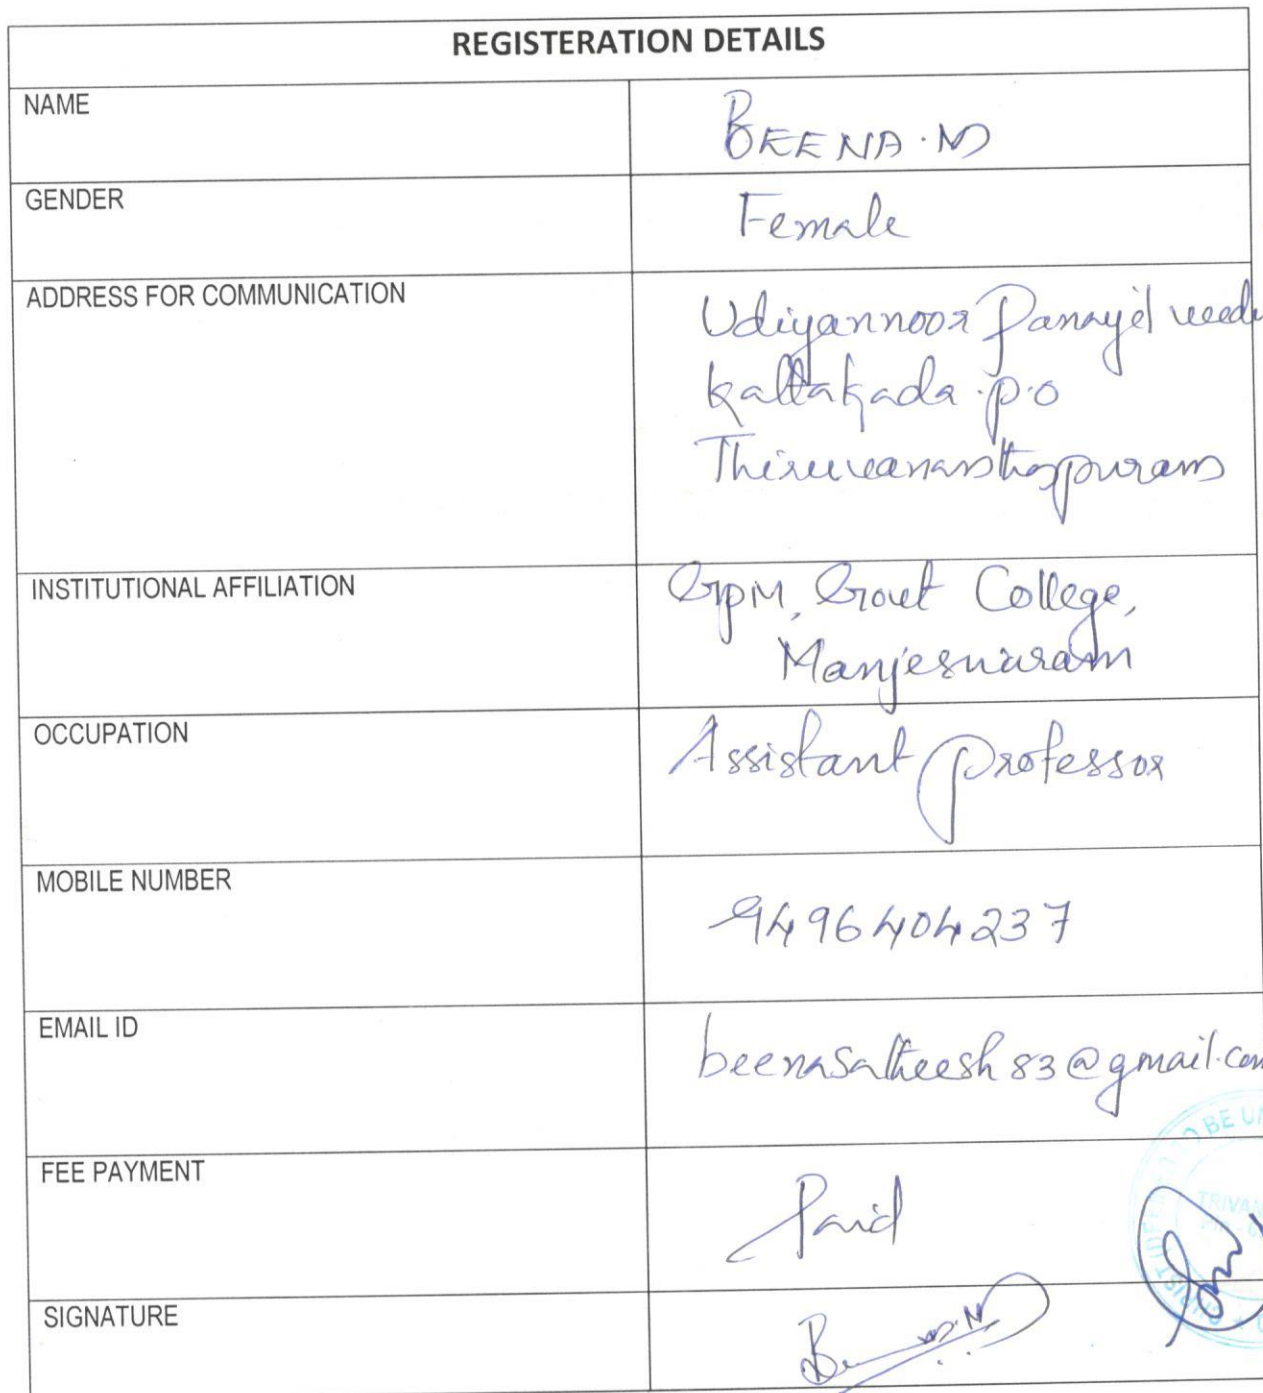 REGISTERATION DETAILS
NAME
BEENA.N
GENDER
Female
ADDRESS FOR COMMUNICATION
Udiyannoor Panayil veedu
kattakada.p.o
Thiruvananthapuram
INSTITUTIONAL AFFILIATION
GPM, Govt College,
Manjeswaram
OCCUPATION
Assistant professor
MOBILE NUMBER
9496404237
EMAIL ID
beenasatheesh83@gmail.com
FEE PAYMENT
Paid
BE UN
TRIVAN
SIGNATURE